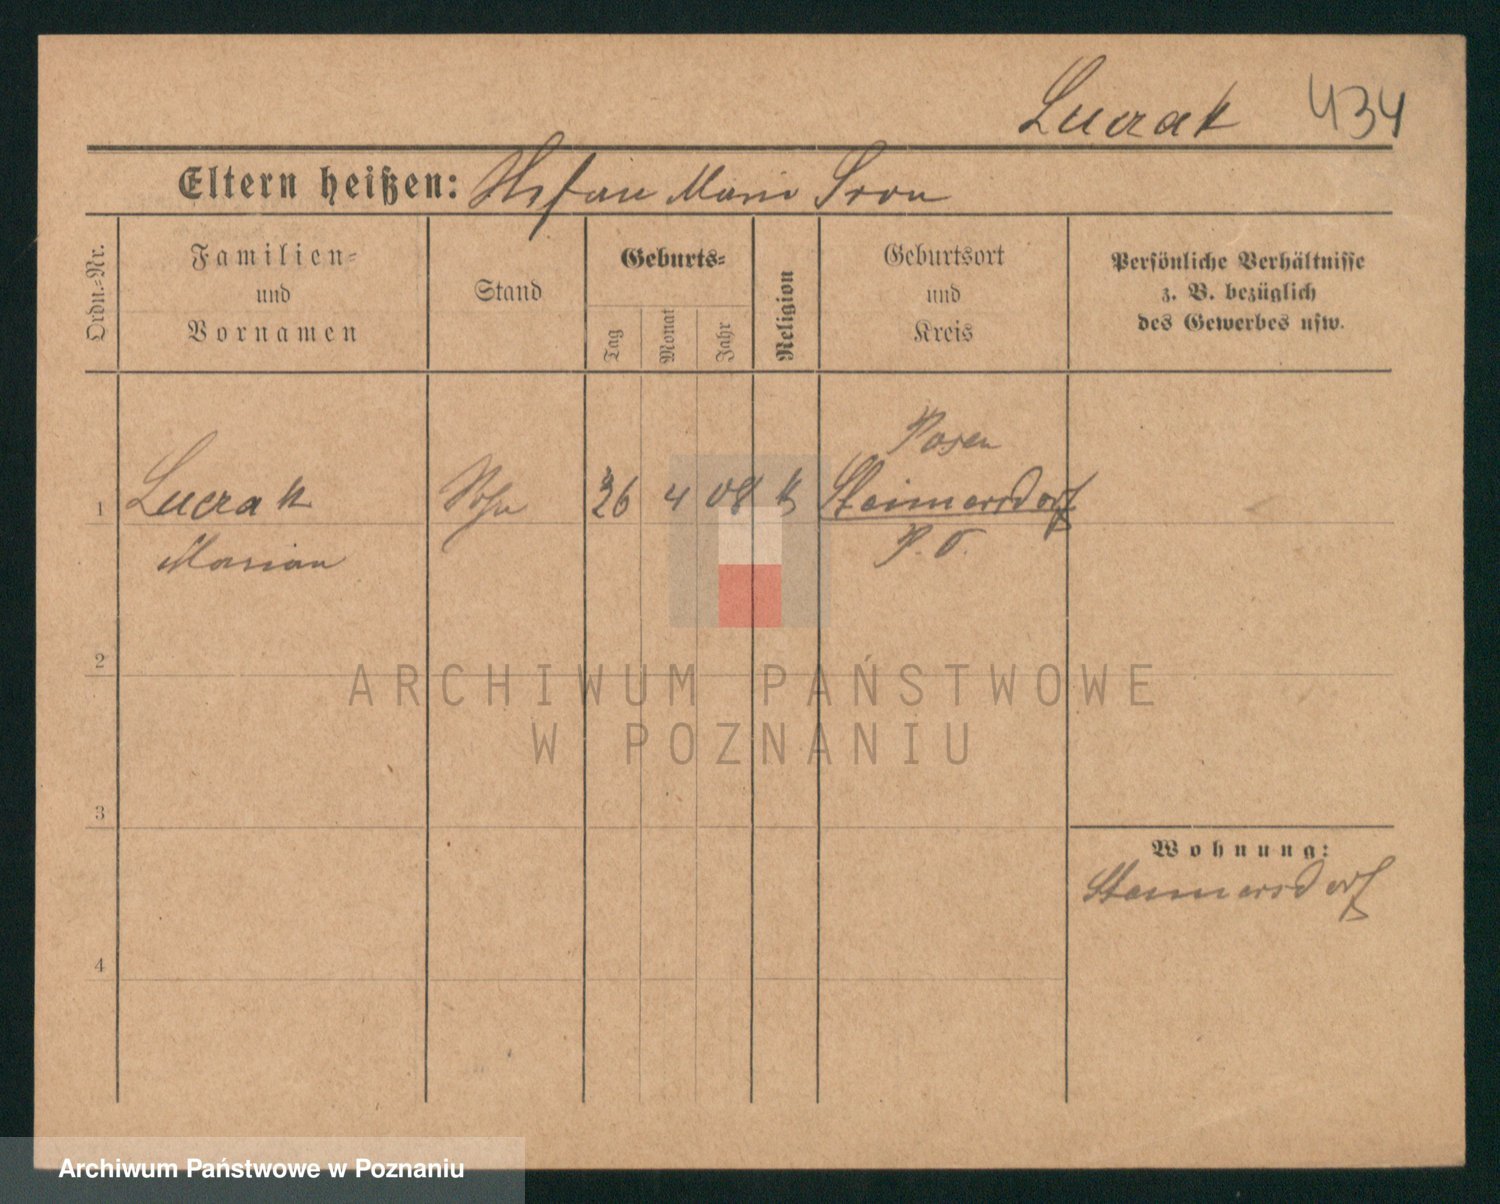 Luczak 434
Eltern heißen: Stefan Maria
Ordn.-Nr.
Familien-
und
Vornamen
Stand
Geburts-
Tag
Monat
Jahr
Religion
Geburtsort
und
Kreis
Persönliche Verhältnisse
z. B. bezüglich
des Gewerbes usw.
Posen
1 Luczak Sohn 26 4 08 k Steimersdorf
Marian P. O.
2
3
4
Wohnung:
Steimersdorf
ARCHIWUM PAŃSTWOWE
W POZNANIU
Archiwum Państwowe w Poznaniu